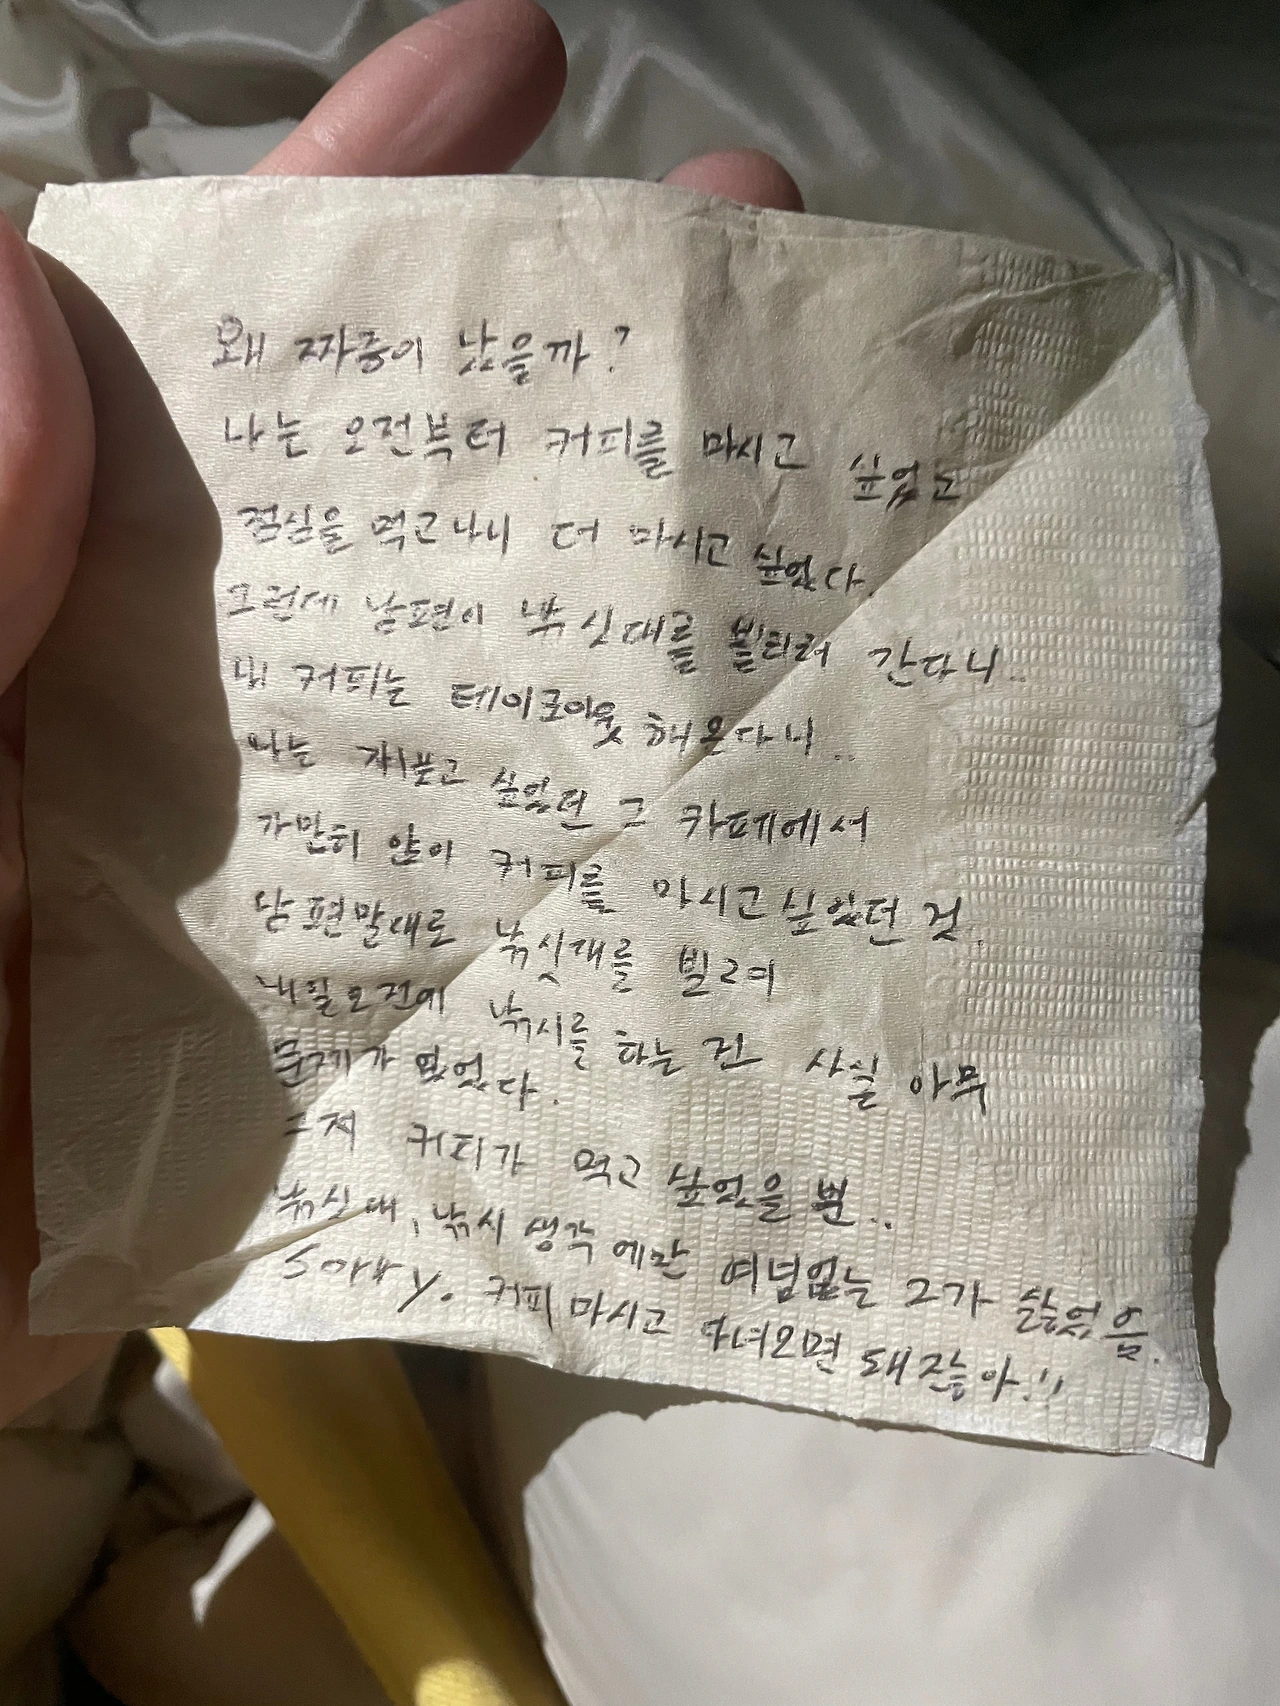 왜 짜증이 났을까?
나는 오전부터 커피를 마시고 싶었고
점심을 먹고나니 더 마시고 싶었다.
그런데 남편이 낚싯대를 빌리러 간다니..
내 커피는 테이크아웃 해온다니..
나는 가보고 싶었던 그 카페에서
가만히 앉아 커피를 마시고 싶었던 것.
남편말대로 낚싯대를 빌려
내일 오전에 낚시를 하는 건 사실 아무
문제가 없었다.
그저 커피가 먹고 싶었을 뿐..
낚싯대, 낚시 생각에만 여념없는 그가 싫었음.
Sorry. 커피 마시고 다녀오면 돼잖아!!